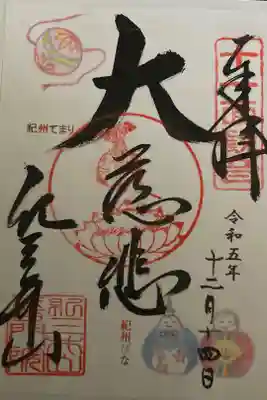 奉拝
令和五年
十二月十四日
大慈悲
紀三井山
紀州てまり
紀州びな